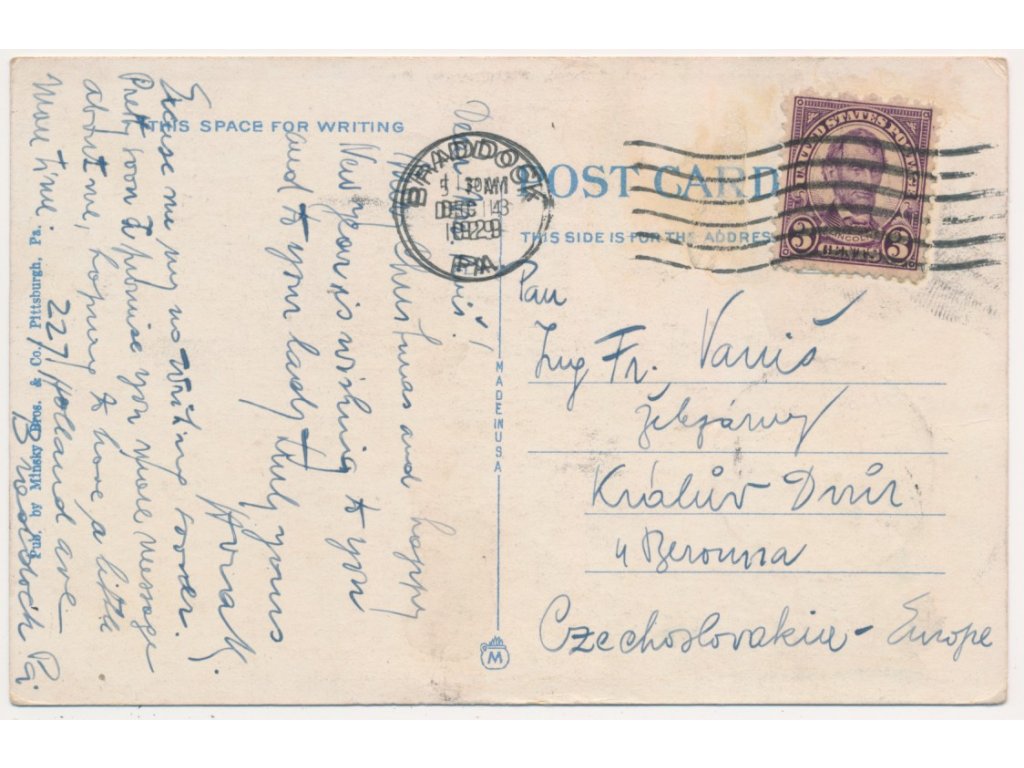 THIS SPACE FOR WRITING
POST CARD
THIS SIDE IS FOR THE ADDRESS
BRADDOCK
DEC 1929
PA.
UNITED STATES POSTAGE
LINCOLN
3 CENTS 3
Merry Christmas and happy
New year is wishing to you
and to your lady truly yours
Excuse me my no writing sooner.
Pretty soon I promise you more message
about me, hoping to have a little
more time.
227 Holland ave
Braddock Pa.
Pub. by Minsky Bros. & Co. Pittsburgh, Pa.
MADE IN USA
M
Pan
Ing Fr. Vaniš
Železárny
Králův Dvůr
u Berouna
Czechoslovakia - Europe